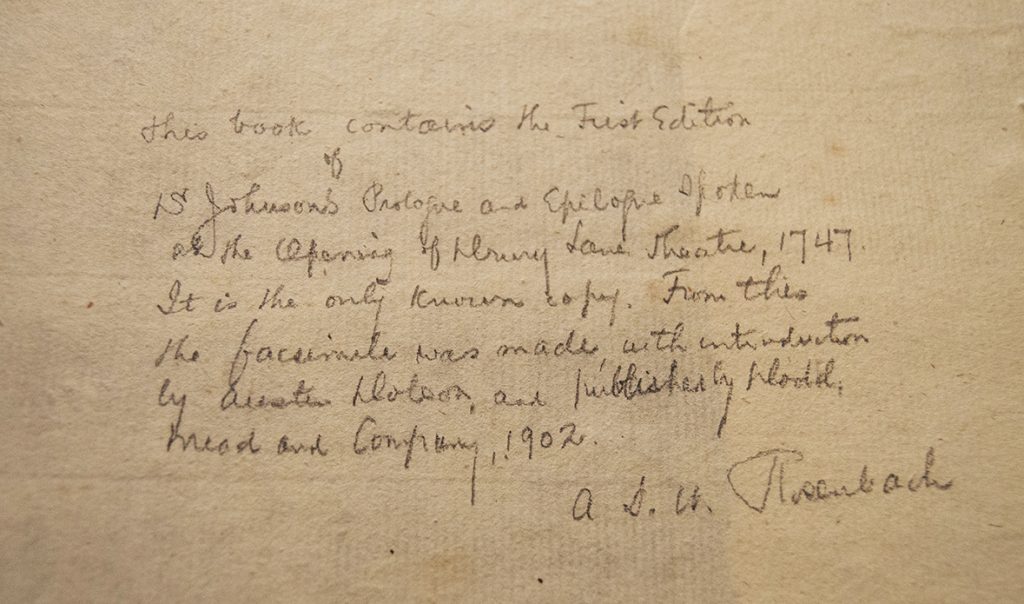 This book contains the First Edition
of
Dr Johnson's Prologue and Epilogue Spoken
at the Opening of Drury Lane Theatre, 1747.
It is the only known copy. From this
the facsimile was made, with introduction
by Austin Dobson, and published by Dodd,
Mead and Company, 1902.
A. S. W. Rosenbach